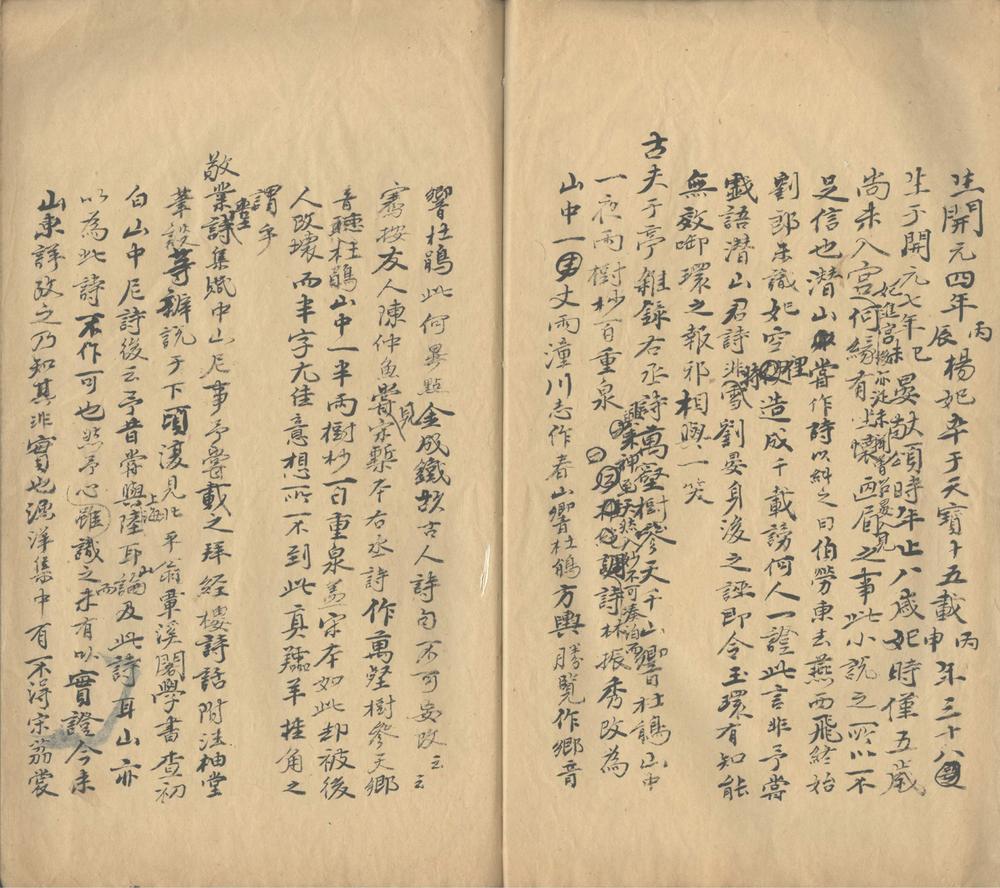 生開元四年丙辰楊妃卒于天寶十五載丙申年三十八
生于開元七年己未晏獻頌時年止八歲妃時僅五歲
尚未入宮何緣有坐懷画眉之事此小說之所以不
足信也潛山嘗作詩以糾之曰伯勞東去燕西飛終始
劉郎未識妃空裡造成千載謗何人一證此言非予嘗
戲語潛山君詩非特雪劉晏身後之誣即令玉環有知能
無效啣環之報邪相與一笑
古夫于亭雜錄右丞詩萬壑樹參天千山響杜鵑山中
一夜雨樹杪百重泉興來神來天然入妙不可湊泊而詩林振秀改為
山中一丈雨潼川志作春山響杜鵑方輿勝覽作鄉音
響杜鵑此何異點金成鐵故古人詩句不可妄改云云
騫按友人陳仲魚嘗見宋槧本右丞詩作萬壑樹參天鄉
音聽杜鵑山中一半雨樹杪百重泉蓋宋本如此却被後
人改壞而半字尤佳意想所不到此真羚羊挂角之
謂乎
敬業堂詩集賦中山尼事予嘗載之拜經樓詩話附注袖堂
等辨說于下頃復見北平翁覃溪閣學書查初
白中山尼詩後云予昔嘗與上海陸耳山論及此詩耳山亦
以為此詩不作可也然予心雖識之未有以實證今朱
山東詳攷之乃知其非實也漁洋集中有一不得宋荔裳